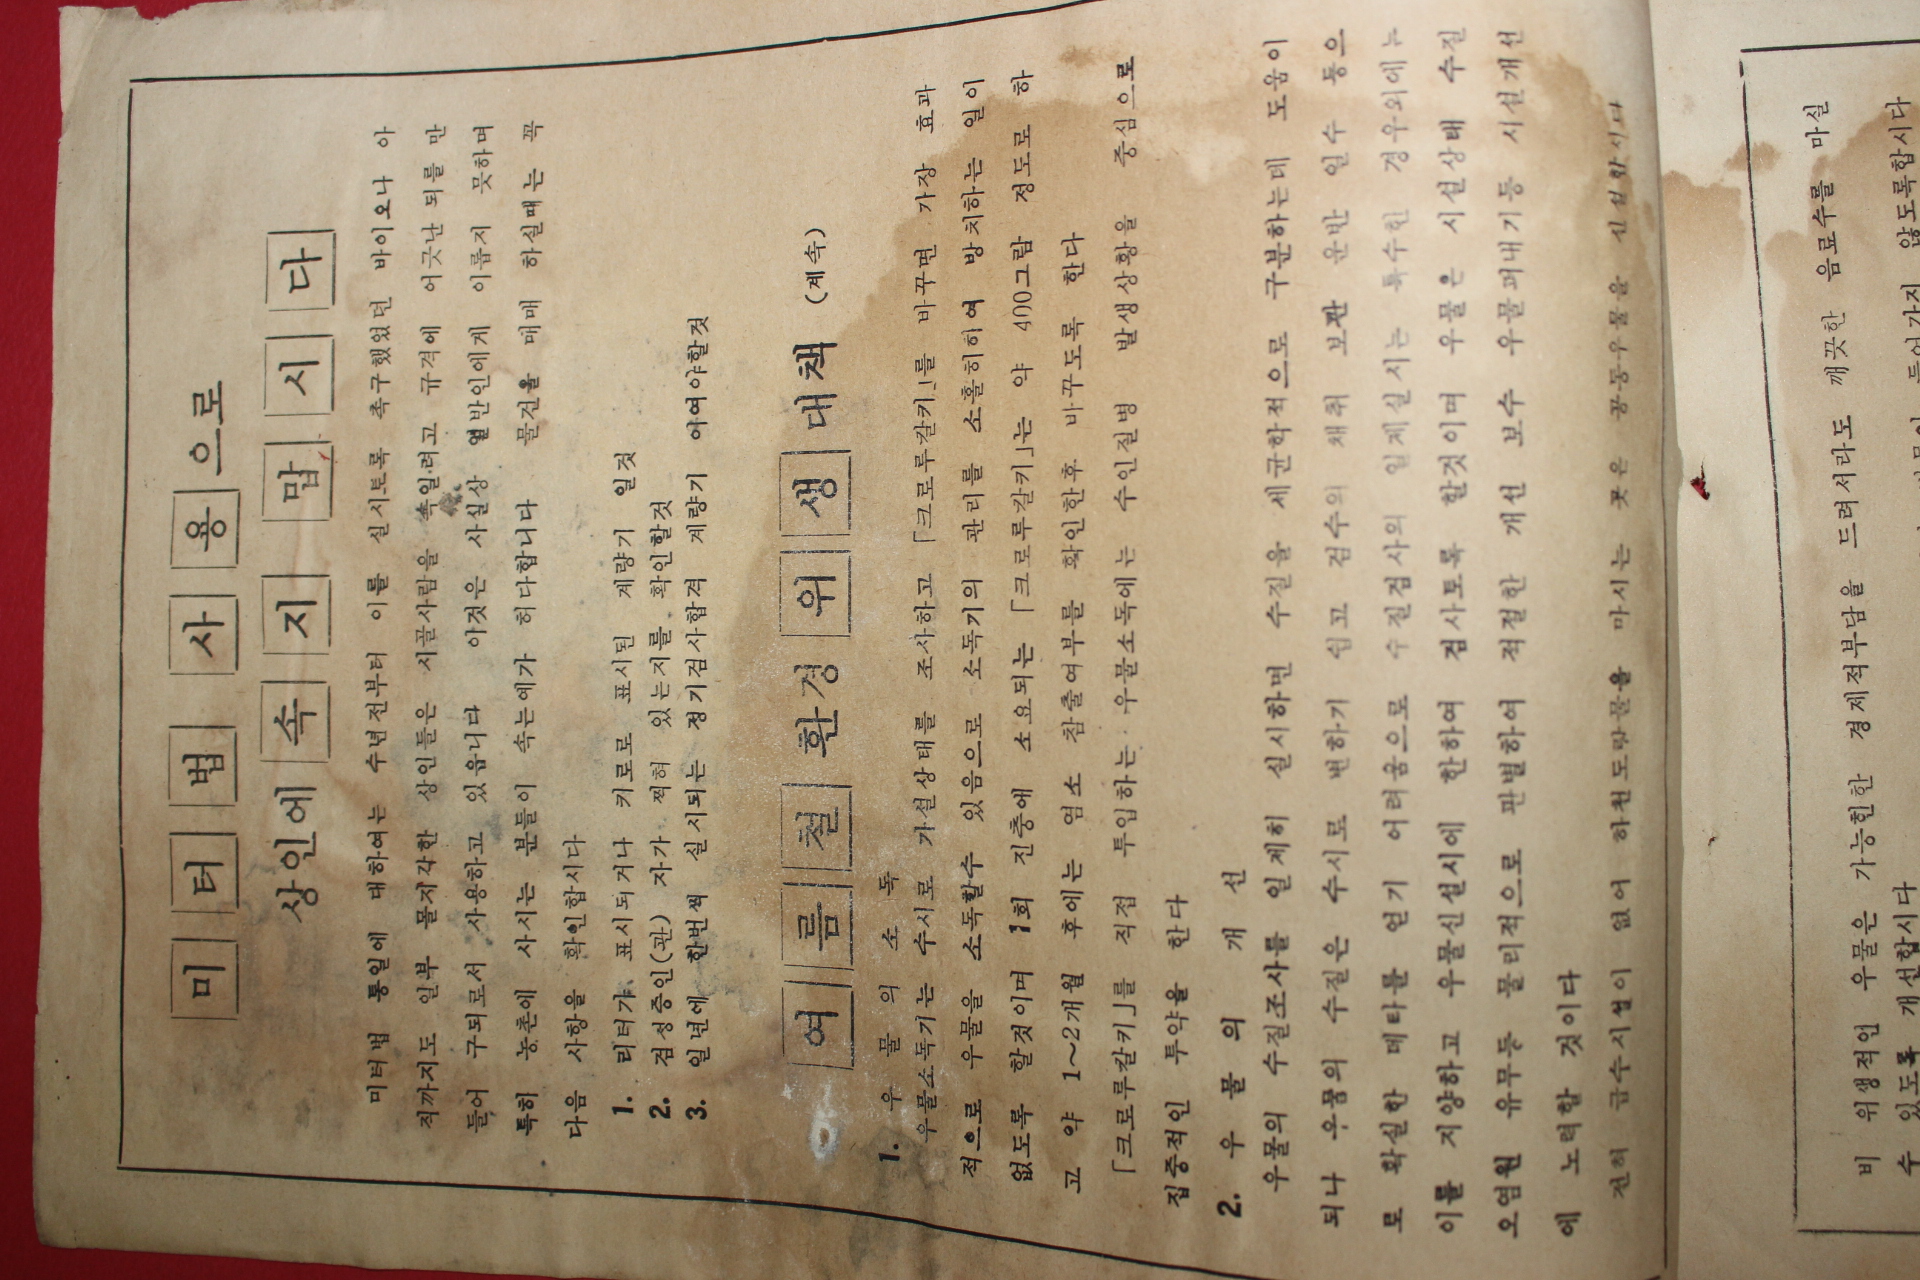 미터법 사용으로
상인에 속지 맙시다
미터법 통일에 대하여는 수년전부터 이를 실시토록 촉구했었던 바이오나 아
직까지도 일부 몰지각한 상인들은 시골사람을 속일려고 규격에 어긋난 되를 만
들어 구되로서 사용하고 있읍니다 이것은 사실상 일반인에게 이롭지 못하며
특히 농촌에 사시는 분들이 속는예가 허다합니다 물건을 매매 하실때는 꼭
다음 사항을 확인합시다
1. 리터가 표시되거나 키로로 표시된 계량기 일것
2. 검성증인(관) 자가 찍혀 있는지를 확인할것
3. 일년에 한번씩 실시되는 정기검사합격 계량기 이여야할것
여름철 환경위생대책 (계속)
1. 우물의 소독
우물소독기는 수시로 가설상태를 조사하고 「크로루칼키」를 바꾸면 가장 효과
적으로 우물을 소독할수 있음으로 소독기의 관리를 소홀히하여 방치하는 일이
없도록 할것이며 1회 진충에 소요되는 「크로루칼키」는 약 400그람 정도로 하
고 약 1~2개월 후에는 염소 참출여부를 확인한후 바꾸도록 한다
「크로루칼키」를 직접 투입하는 우물소독에는 수인질병 발생상황을 중심으로
집중적인 투약을 한다
2. 우물의 개선
우물의 수질조사를 일제히 실시하면 수질을 세균학적으로 구분하는데 도움이
되나 우물의 수질은 수시로 변하기 쉽고 검수의 채취 보관 운반 일수 등으
로 확실한 데타를 얻기 어려움으로 수질검사의 일제실시는 특수한 경우외에는
이를 지양하고 우물신설시에 한하여 검사토록 할것이며 우물은 시설상태 수질
오염원 유무등 물리적으로 판별하여 적절한 개선 보수 우물퍼내기등 시설개선
에 노력할 것이다
전혀 급수시설이 없어 하천도랑물을 마시는 곳은 공동우물을 신설합시다
비 위생적인 우물은 가능한한 경제적부담을 드려서라도 깨끗한 음료수를 마실
수 있도록 개선합시다
들어가지 않도록합시다